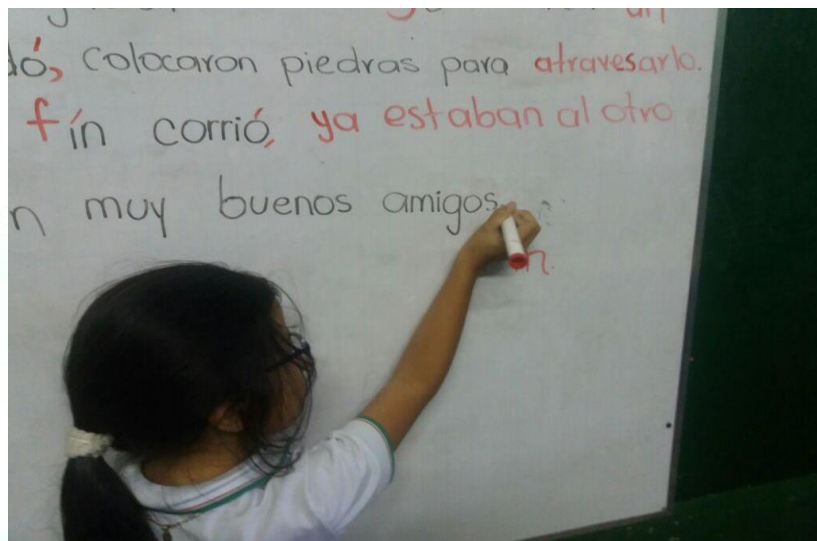 un
dó, colocaron piedras para atravesarlo.
fín corrió, ya estaban al otro
n muy buenos amigos
n.